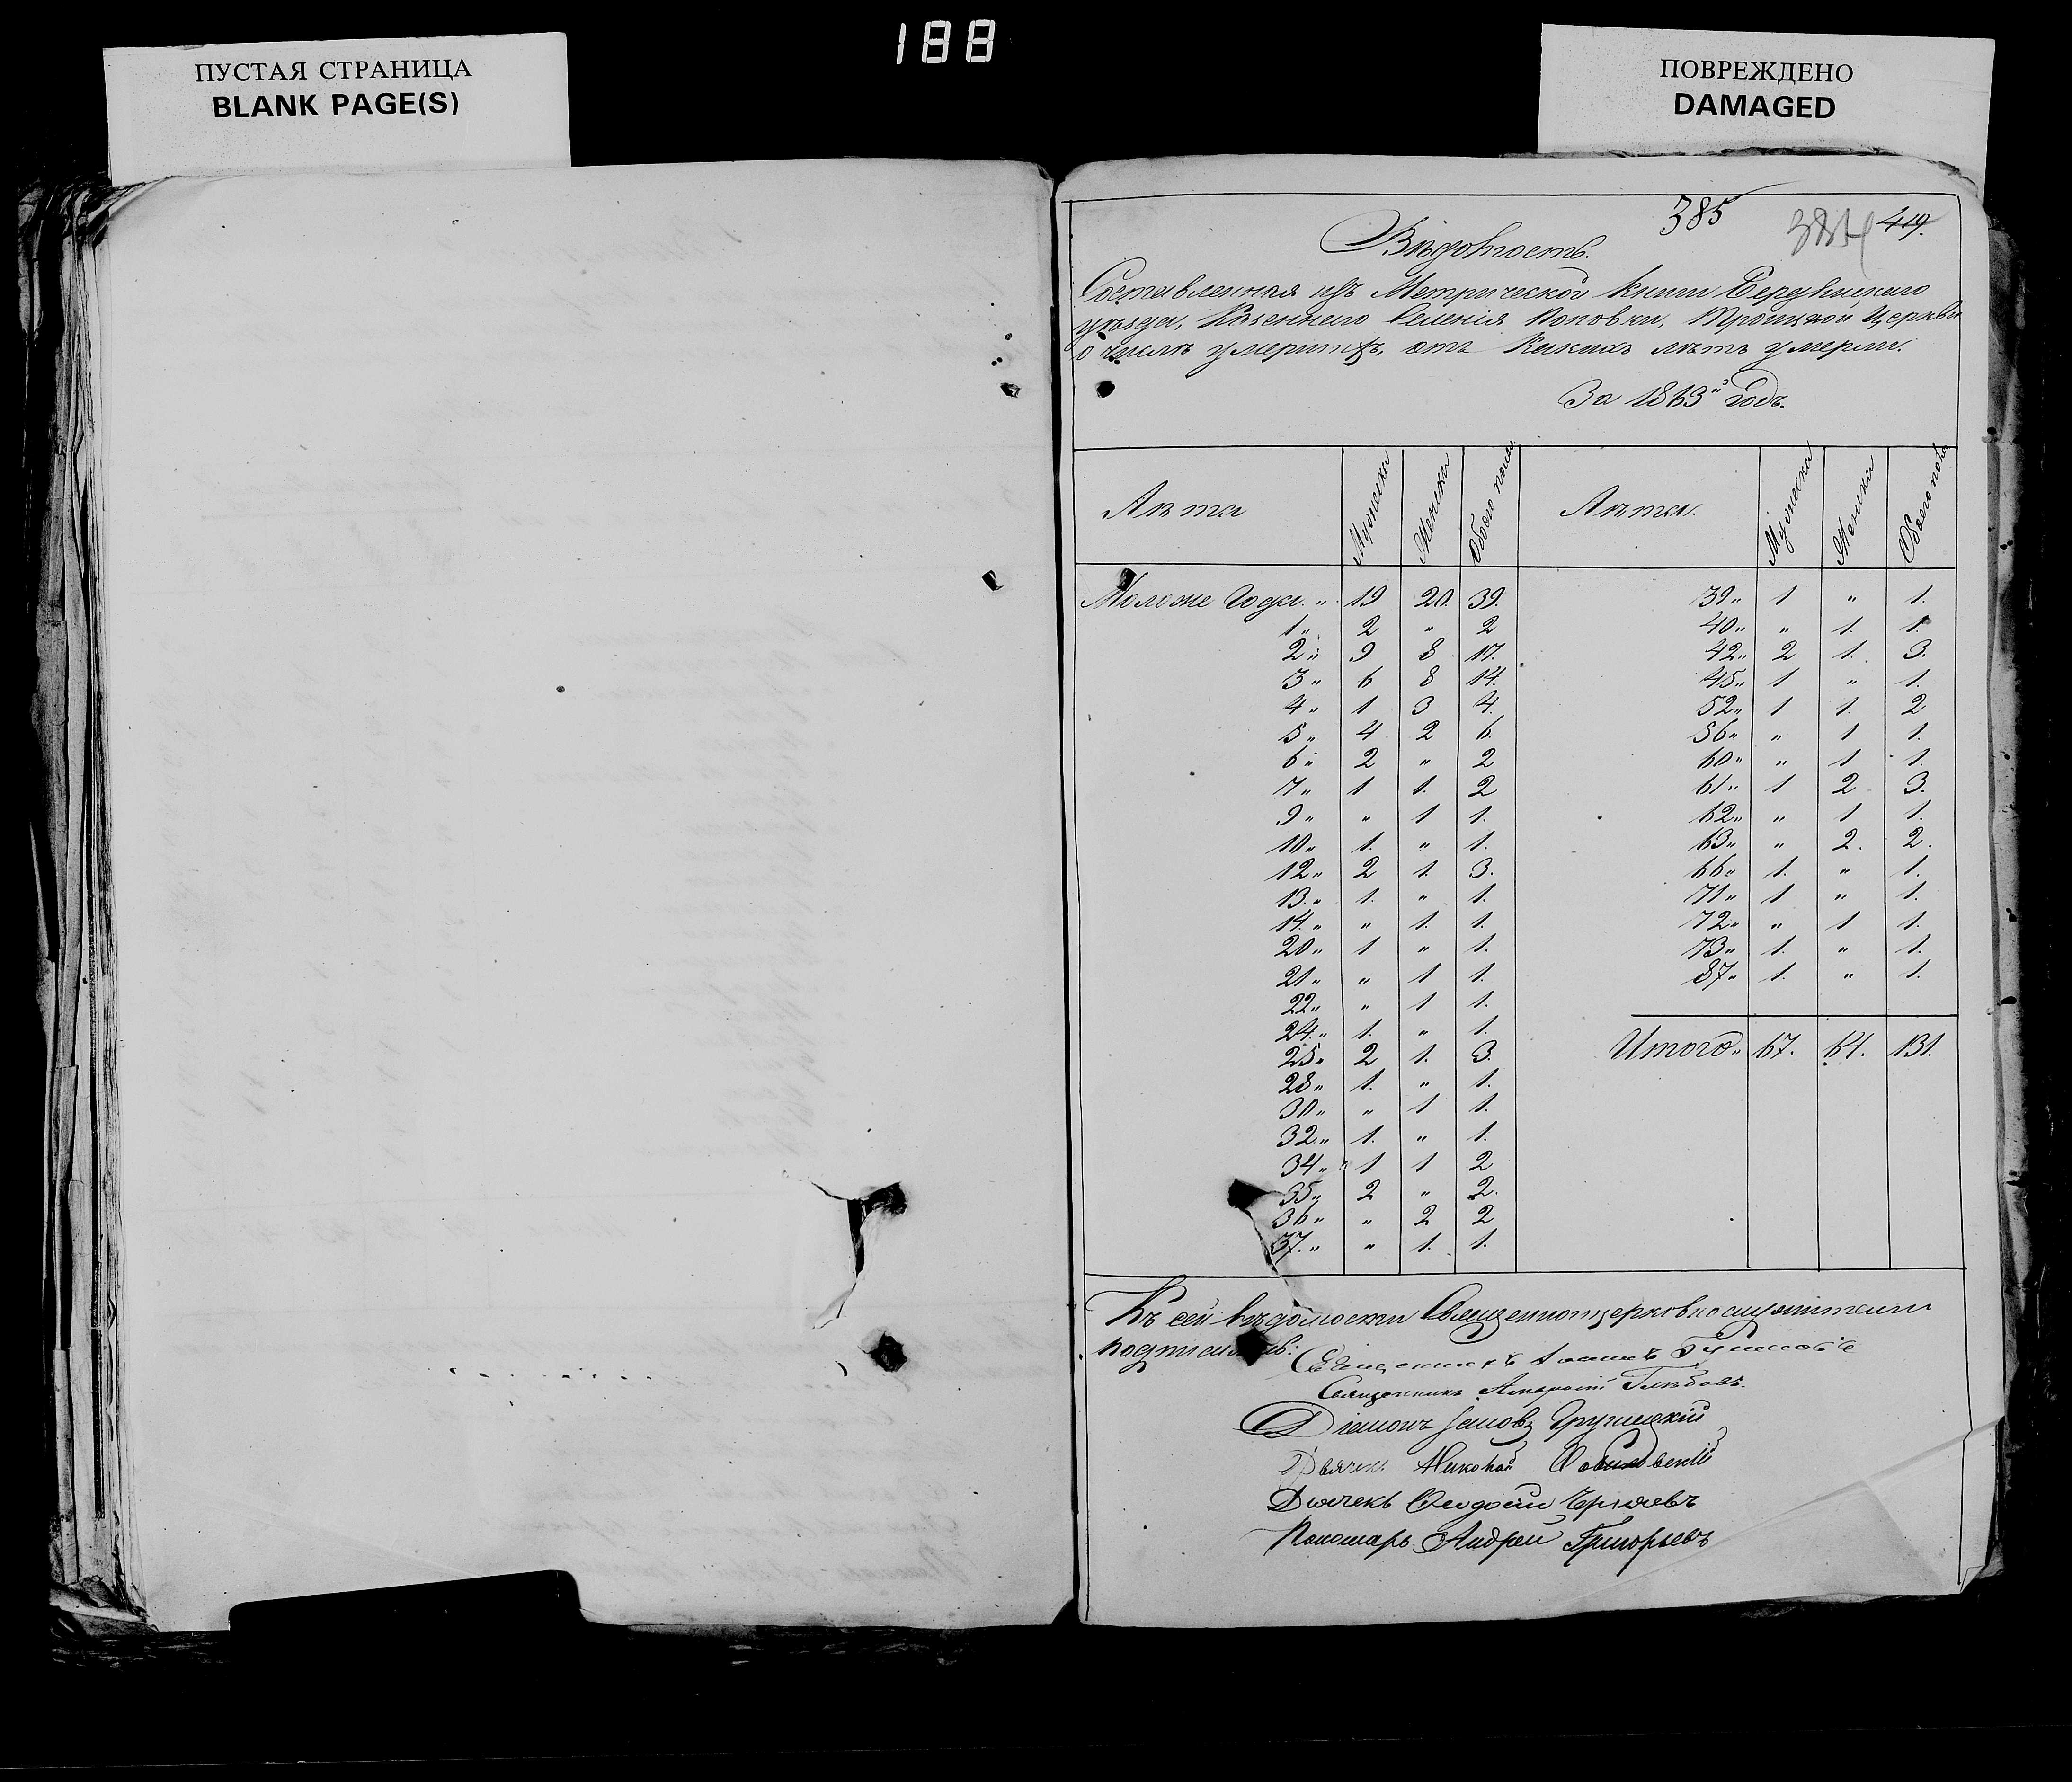 188
ПУСТАЯ СТРАНИЦА
BLANK PAGE(S)
ПОВРЕЖДЕНО
DAMAGED
385 384 419.
Вѣдомость.
Составленная изъ Метрической книги Бердянскаго
уѣзда, Казеннаго Селенія Поповки, Троицкой Церкви
о числѣ умершихъ, отъ какихъ лѣтъ умерли.
За 1863й годъ.
Лѣта Мужеска Женска Обоего пола. Лѣта. Мужеска Женска Обоего пола
Моложе Года. „ 19 20. 39. 39„ 1 „ 1.
1„ 2 „ 2 40„ „ 1. 1.
2„ 9 8 17. 42„ 2 1. 3.
3„ 6 8 14. 45„ 1 „ 1.
4„ 1 3 4. 52„ 1 1. 2
5„ 4 2 6. 56„ „ 1 1.
6„ 2 „ 2 60„ „ 1 1.
7„ 1 1. 2 61„ 1 2 3.
9„ „ 1 1. 62„ „ 1 1.
10„ 1. „ 1. 63„ „ 2. 2.
12„ 2 1. 3. 66„ 1. „ 1.
13.„ 1. „ 1. 71„ 1 „ 1.
14.„ „ 1. 1. 72„ „ 1 1.
20„ 1 „ 1. 73„ 1. „ 1.
21„ „ 1 1. 87„ 1. „ 1.
22„ „ 1 1.
24.„ 1. „ 1.
Итого„ 67. 64. 131.
25„ 2 1. 3.
28„ 1. „ 1.
30„ „ 1 1.
32„ 1. „ 1.
34„ 1 1 2
35„ 2 „ 2.
36„ „ 2 2
37.„ „ 1. 1.
Къ сей вѣдомости Священноцерковнослужители
подписались:
Священникъ Іоаннъ
Священникъ Глѣбовъ.
Діаконъ Грушецкій
Дьячекъ Николай
Дьячекъ Феодосій
Пономарь Андрей Григорьевъ